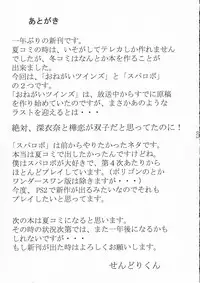 あとがき
一年ぶりの新刊です。
夏コミの時は、いそがしてテレカしか作れません
でしたが、冬コミはなんとか本を作ることが
出来ました。
今回は、「おねがいツインズ」と「スパロボ」
の２つです。
「おねがいツインズ」は、放送中からすでに原稿
を作り始めていたので、まさかあのような
ラストを迎えるとは・・・
絶対、深衣奈と樺恋が双子だと思ってたのに！
「スパロボ」は前からやりたかったネタです。
本当は夏コミで出したかったんですけどね。
僕はスパロボが大好きで、第４次あたりから
ほとんどプレイしています。（ポリゴンのとか
ワンダースワン版は除きますが・・・）
今度、PS2で新作が出るみたいなので、それも
プレイしたいと思ってます。
次の本は夏コミになると思います。
その時の状況次第では、またテレカになるかも
しれないですが・・・
もし新刊が出た時はよろしくお願いします。
せんどりくん